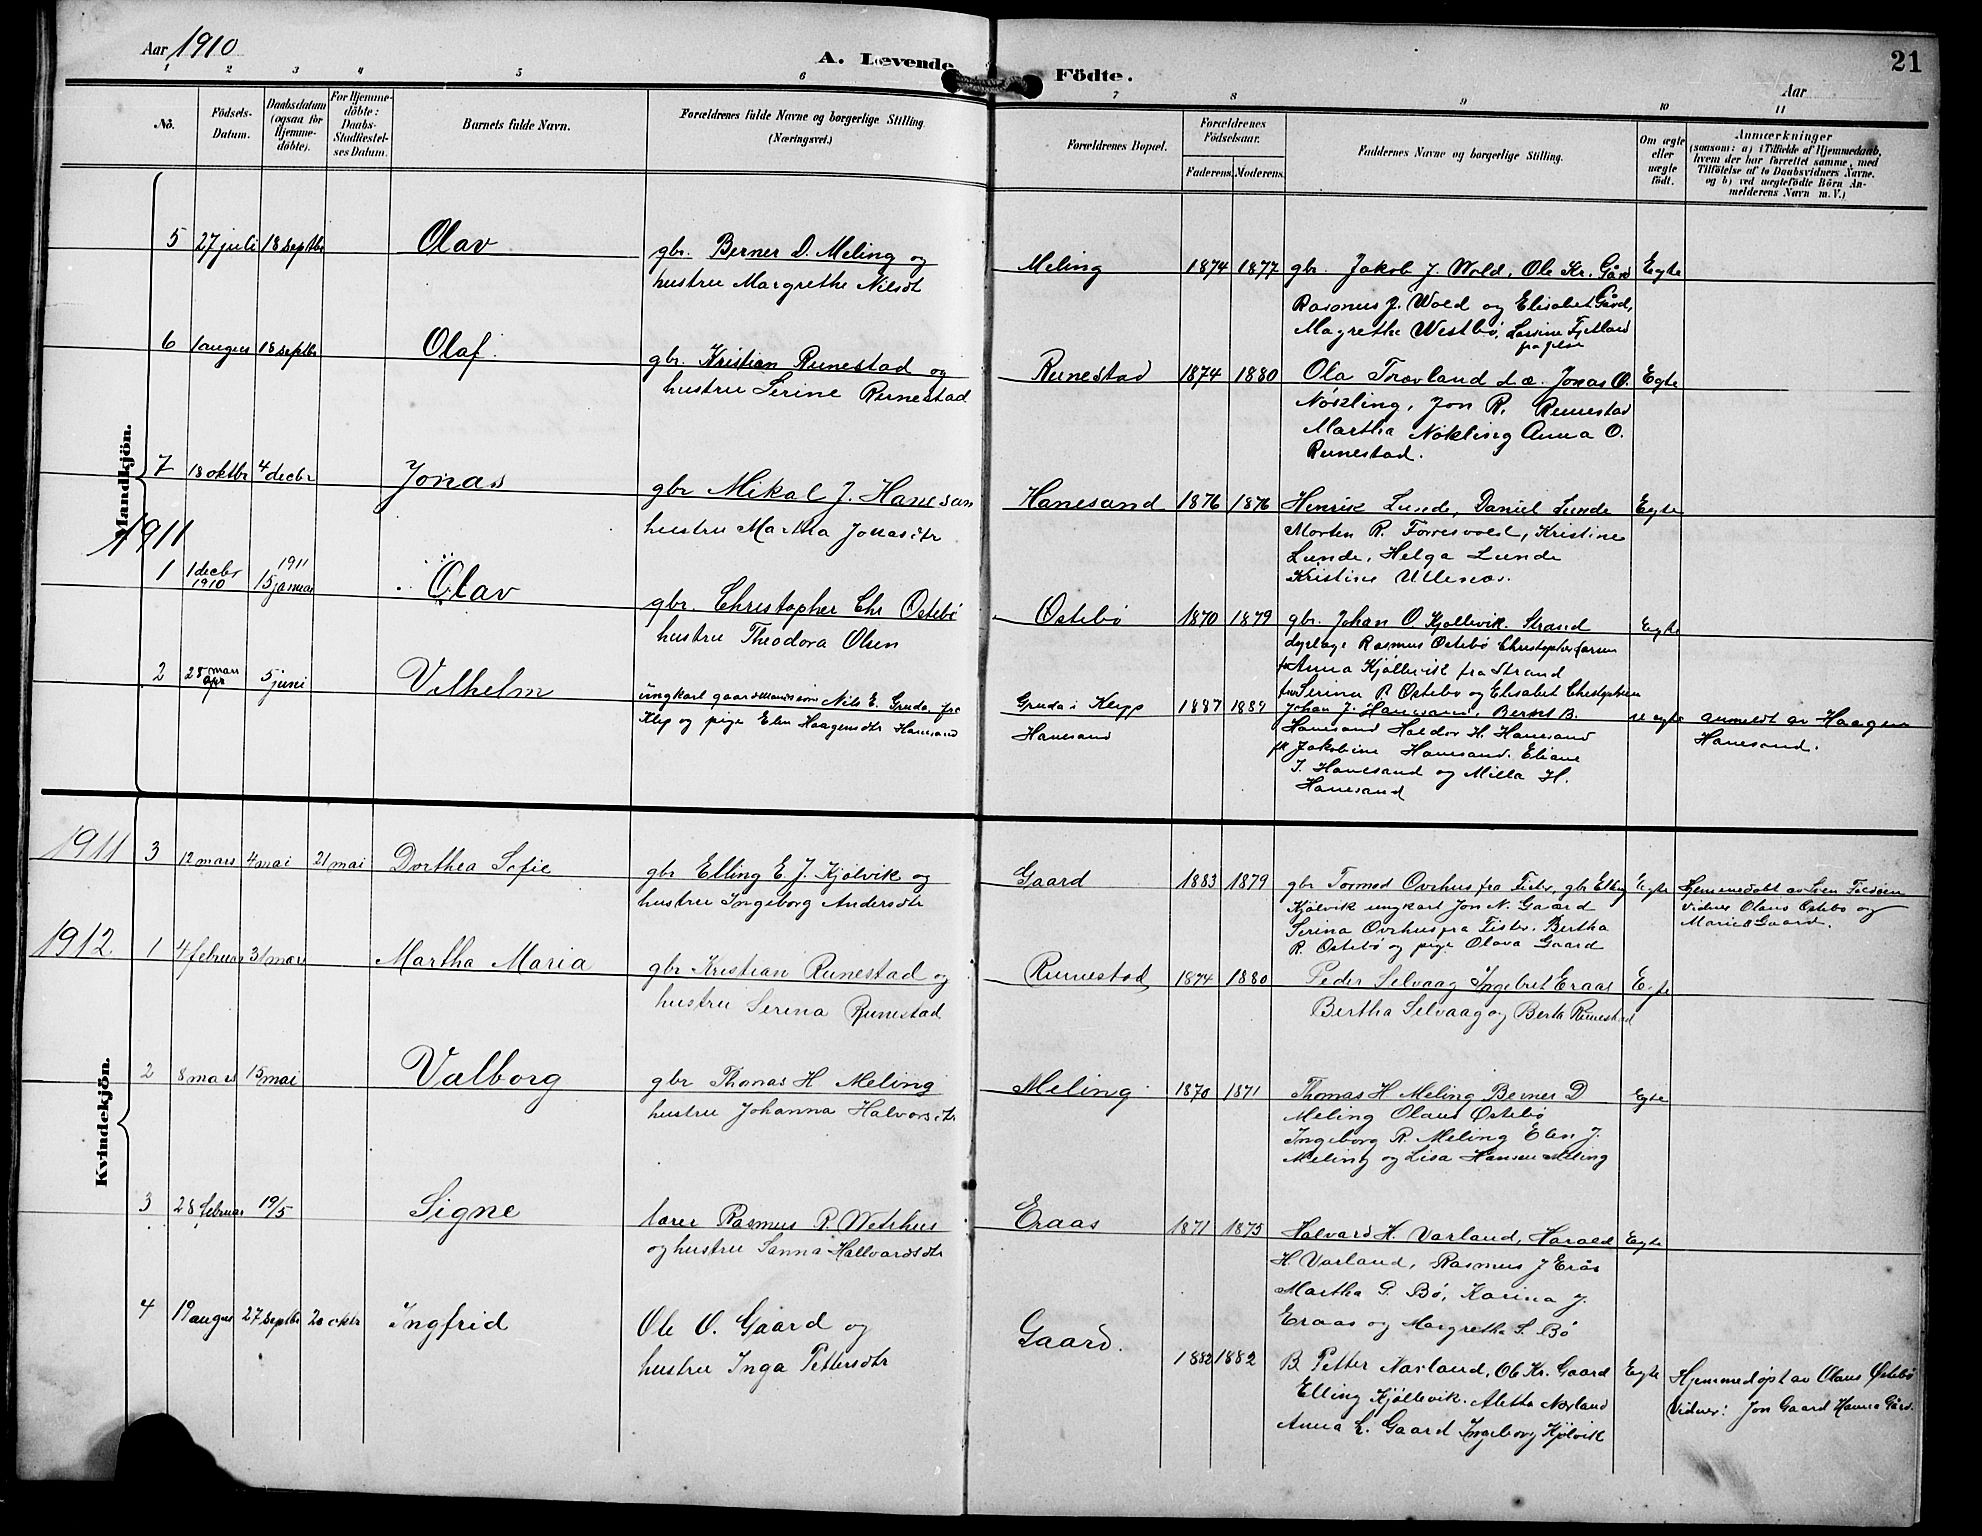 Aar 1910
A. Levende Födte.
21
Aar
1 2 3 4 5 6 7 8 9 10 11
Nö.
Födsels-Datum.
Daabsdatum (ogsaa for Hjemme-döbte).
For Hjemme-döbte: Daabs-Stadfæstel-ses Datum.
Barnets fulde Navn.
Forældrenes fulde Navne og borgerlige Stilling (Næringsvei.)
Forældrenes Bopæl.
Forældrenes Födselsaar.
Faderens. Moderens.
Faddernes Navne og borgerlige Stilling.
Om ægte eller uægte födt.
Anmærkninger
(saasom: a) i Tilfælde af Hjemmedaab,
hvem der har forrettet samme, med
Tilföielse af to Daabsvidners Navne.
og b) ved uægtefödte Börn An-
melderens Navn m.V.)
Mandkjön.
5 27 juli 18 septbr Olav
gbr. Berner D. Meling og
hustru Margrethe Nilsdt
Meling 1874 1877
gbr. Jakob J. Wold, Ole Kr. Gård
Rasmus J. Wold og Elisabet Gård,
Magrethe Westbö, Larsine Fjetland
Egte
6 1 august 18 septbr Olaf.
gbr. Kristian Runestad og
hustru Serine Runestad
Runestad 1874 1880
Ola Travland d.æ. Jonas O.
Nökling, Jon R. Runestad
Martha Nökling Anna O.
Runestad.
Egte
7 18 oktbr 4 decbr Jonas
gbr Mikal J. Hanesan
hustru Martha Jonasdtr
Hanesand 1876 1876
Henrik Lunde, Daniel Lunde
Morten R. Forresvold, Kristine
Lunde, Helga Lunde
Kristine Ullenes.
Egte
1911
1 1 decbr 1910 1911 15 januar Olav
gbr. Christopher Chr Østebö
hustru Theodora Olsen
Østebö 1870 1879
gbr. Johan O Kjöllevik. Strand
Rasmus Østebö Christophersen
Anna Kjöllevik fra Strand
Serina R Østebö og Elisabet Christophersen
Egte
2 28 mars 5 juni Vilhelm
ungkarl gaardmandssøn Nils E. Gruda fra
Klep og pige Elen Haagensdtr Hanesand
Gruda i Klepp
Hanesand
1887 1889
Johan J. Hanesand, Bernt B.
Hanesand Haldor H. Hanesand
Jakobine Hanesand. Eliane
J. Hanesand og Milla H.
Hanesand
uegte
anmeldt av Haagen
Hanesand.
Kvindekjön.
1911 3 12 mars 4 mai 21 mai Dorthea Sofie
gbr Elling E. J. Kjølvik og
hustru Ingeborg Andersdtr
Gaard 1883 1879
gbr Tormod Ovrhus fra Fister, gbr Elling
Kjölvik ungkarl Jon N. Gaard
Serina Ovrhus fra Fister. Bertha
R. Østebø og pige Olava Gaard
Egte
Hjemmedöbt av Sven
vidner Olaus Østebø og
Marie Gaard.
1912. 1 4 februar 31 mars Martha Maria
gbr Kristian Runestad og
hustru Serina Runestad
Runestad 1874 1880
Peder Selvaag Ingebret Eraas
Bertha Selvaag og Berta Runestad
Egte
2 8 mars 15 mai Valborg
gbr Thomas H Meling
hustru Johanna Halvorsdtr
Meling 1870 1871
Thomas H Meling Berner D
Meling Olaus Østebö
Ingeborg R. Meling Elen J.
Meling og Lisa Hansen Meling
Egte
3 28 februar 19/5 Signe
lærer Rasmus R. Wetrhus
og hustru Sanna Hallvardsdtr
Eraas 1871 1875
Halvard H. Varland, Harald
H. Varland, Rasmus J Erås
Martha G. Bö, Karina J.
Eraas og Margretha S. Bö
Egte
4 19 august 27 septbr 20 oktbr Ingfrid
Ole O. Gaard og
hustru Inga Pettersdtr
Gaard. 1882 1882
B. Petter Narland, Ole Kr. Gaard
Elling Kjöllevik. Aletta Norland
Anna L. Gaard Ingeborg Kjölvik
Egte
Hjemmedöpt av Olaus Østebö
Vidner: Jon Gaard Hanna Gård.